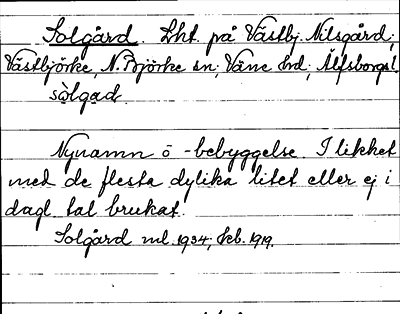 Solgård. Lht. på Västbj. Nilsgård;
Västbjörke, N. Björke sn; Väne hd; Älfsborgs l.
sòlgad.
Nynamn o -bebyggelse. I likhet
med de flesta dylika litet eller ej i
dagl. tal brukat.
Solgård ml. 1934, kb. 1919.